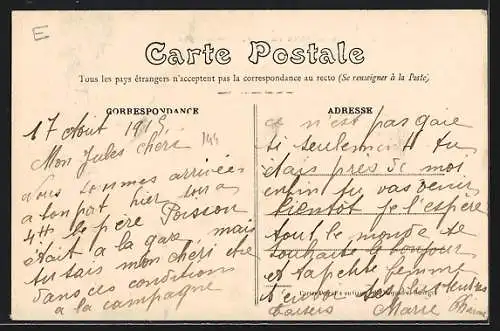 E
Carte Postale
Tous les pays étrangers n'acceptent pas la correspondance au recto (Se renseigner à la Poste)
CORRESPONDANCE
17 Aout 1915
144
Mon Jules chéri
nous sommes arrivées
a bon port hier soir a
4H le père Poisson
était a la gare, mais
tu sais mon chéri que
dans ces conditions
a la campagne
ADRESSE
ce n'est pas gaie
si seulement tu
étais près de moi
enfin tu vas venir
bientôt je l'espère
tout le monde te
souhaite le bonjour
et ta petite femme
t'envoie ses
baisers Marie